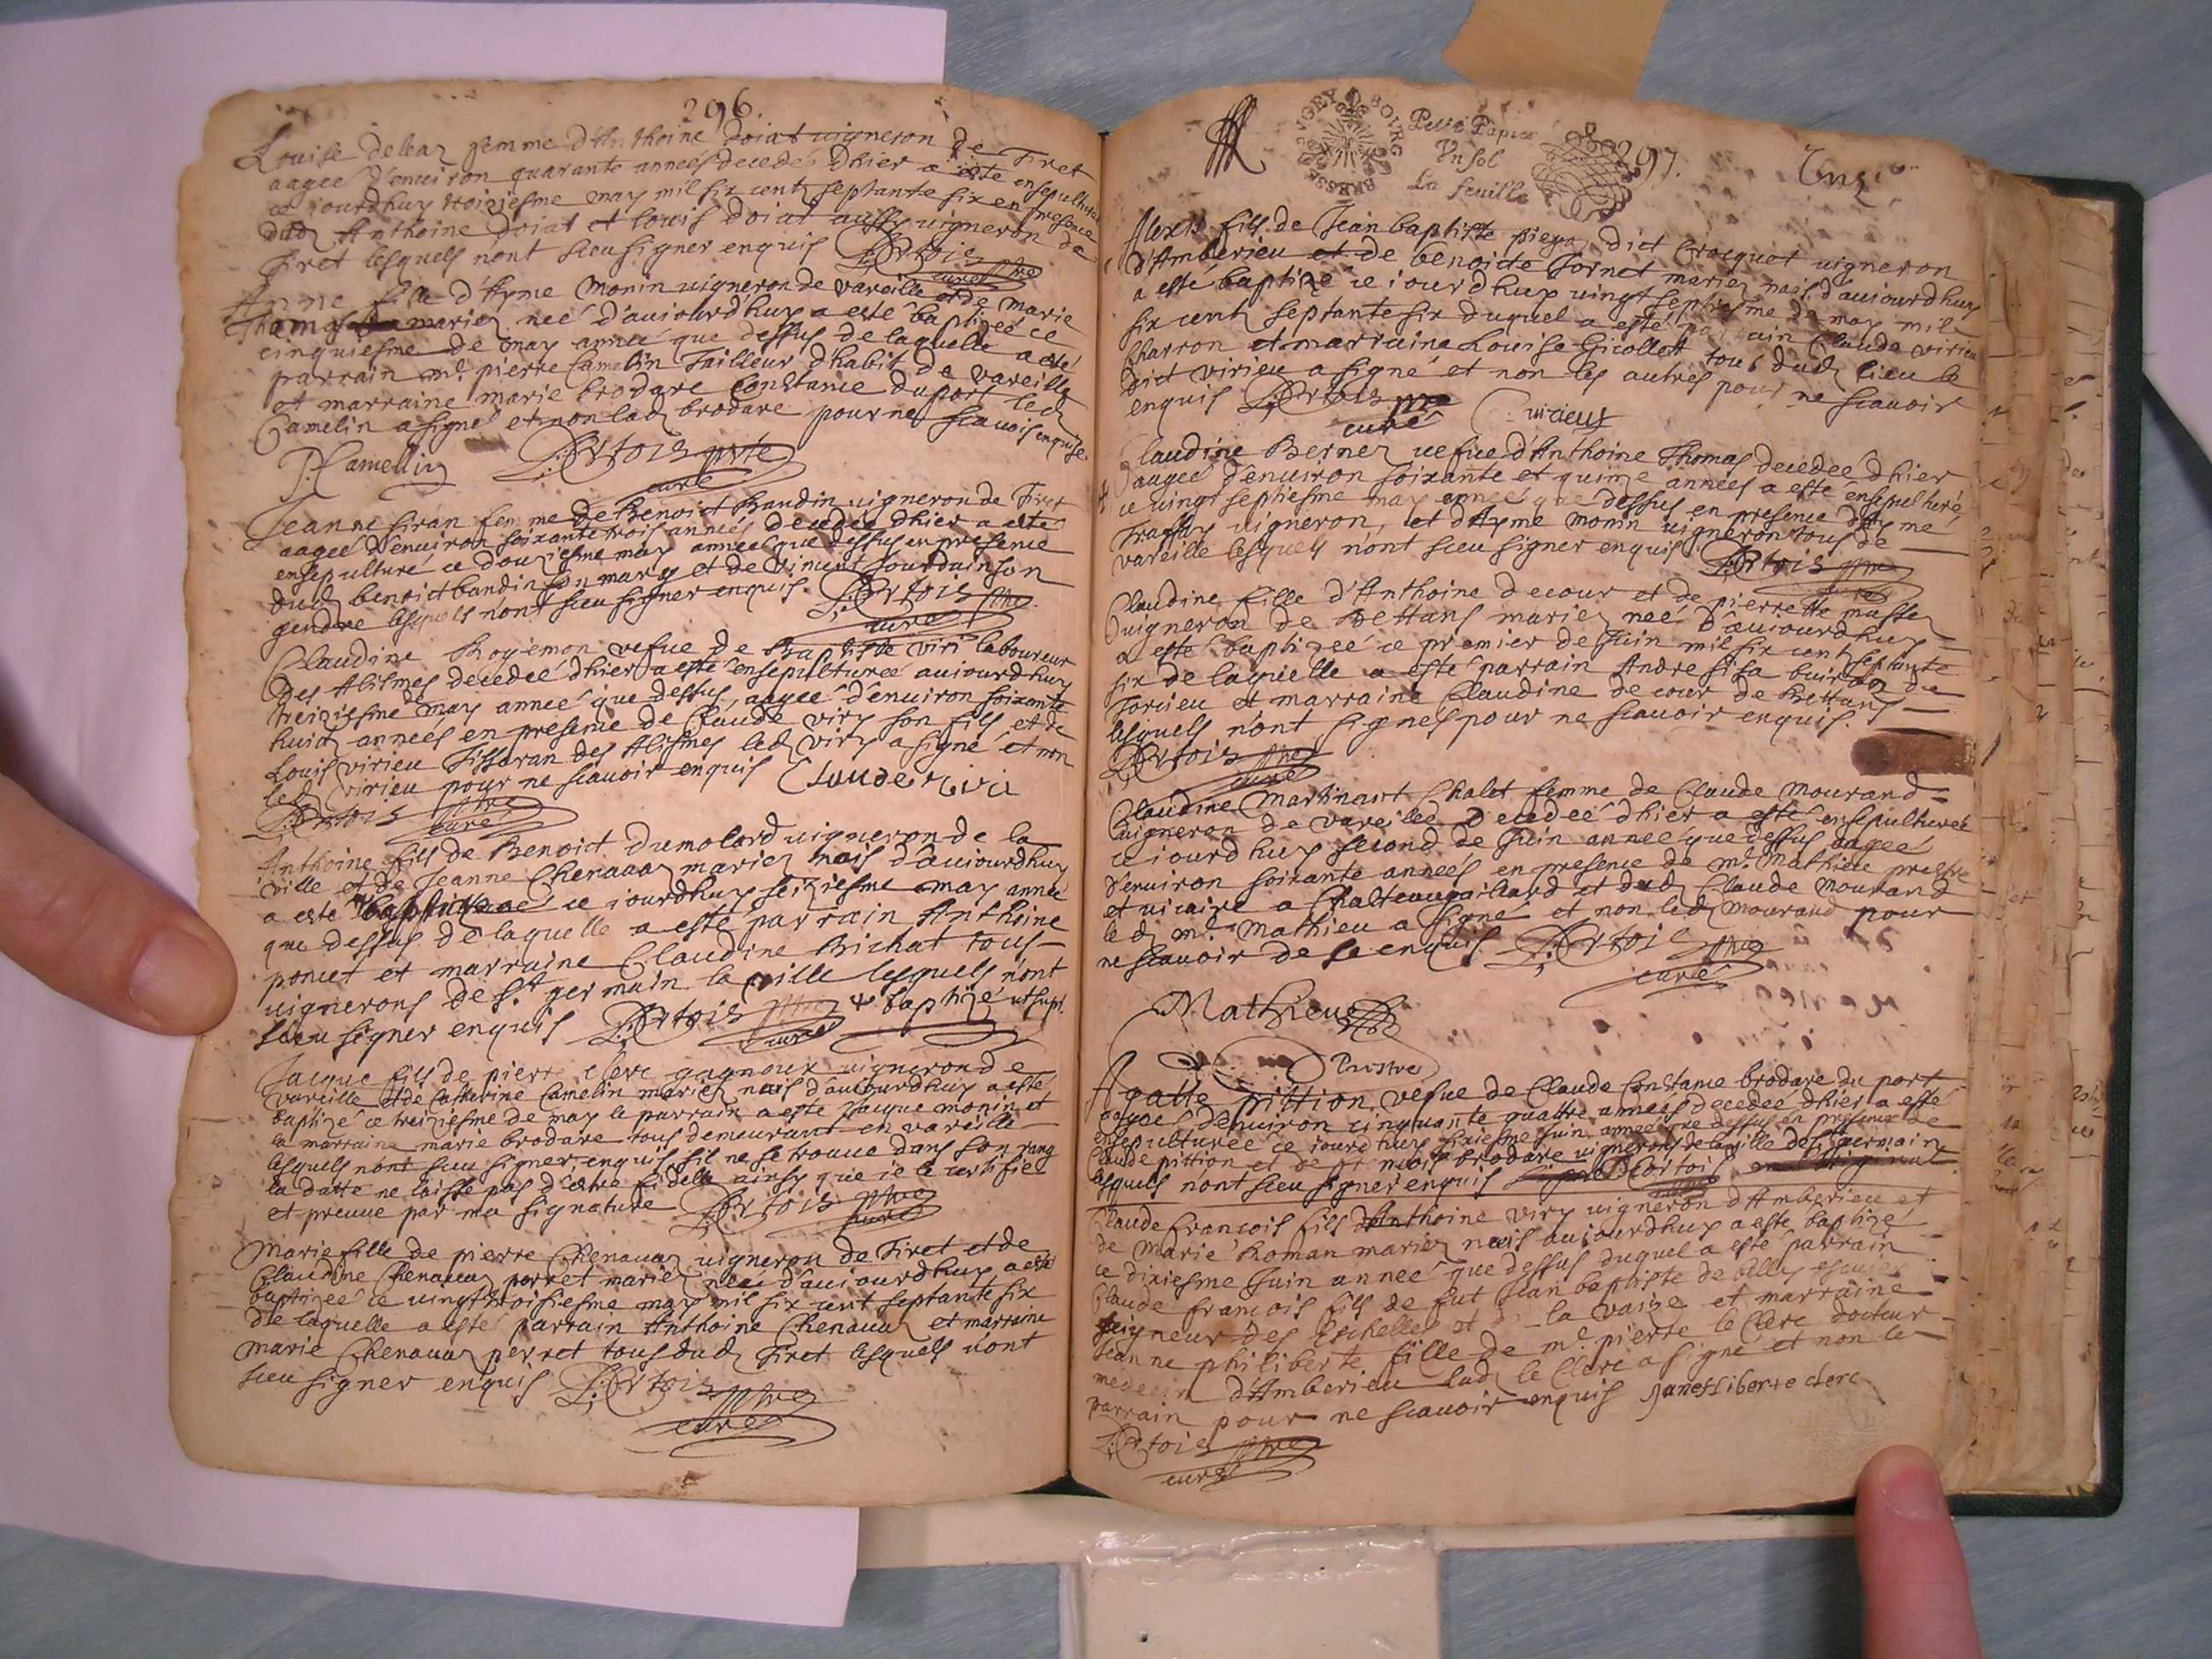 296.
Louise deleaz femme d'Anthoine doiat vigneron de Tiret
aageé d'enuiron quarante anneés decedeé dhier a esté ensepulturé
ce iourdhuy troiziesme may mil six cent septante six en presence
dud Anthoine doiat et Louis doiat aussy vigneron de
Tiret lesquels n'ont sceu signer enquis
curé
Anne fille d'Ayme Monin vigneron de vareille et de Marie
Thomas mariez neé d'auiourdhuy a esté baptizeé ce
cinquiesme de may anneé que dessus de laquelle a esté
parrain me. pierre Camelin Tailleur d'habit de vareille
et marraine marie brodare Constance du port led
Camelin a signé et non lad brodare pour ne scauoir enquise
P. Camellin D. Ortois pbre
curé
Jeanne siran femme de Benoict Baudin vigneron de Tiret
aageé d'enuiron soixante trois anneés decedeé dhier a esté
ensepulturé ce douziesme may anneé que dessus en presence
dud benoict baudin son mary et de vincent Jourdain son
gendre lesquels n'ont sceu signer enquis.
curé
Claudine Rogemon vefue de Baptiste viri laboureur
des Alismes decedeé dhier a esté ensepultureé auiourdhuy
treiziesme may anneé que dessus, aageé d'enuiron soixante
huict anneés en presence de Claude viry son fils et de
Louis virieu Tissaran des Alismes led viry a signé et non
led virieu pour ne scauoir enquis Claude viri
curé
Anthoine fils de Benoict Dumolard vigneron de la
ville et de Jeanne Chenauaz mariez nais d'auiourdhuy
a esté ce iourdhuy seiziesme may anneé
que dessus de laquelle a esté parrain Anthoine
poncet et marraine Claudine Bichat tous
vignerons de St. germain la ville lesquels n'ont
sceu signer enquis baptizé ut supr.
curé
Jacque fils de pierre clerc gagnoux vigneron de
vareille et de Catherine Camelin mariez nais d'auiourdhuy a esté
baptizé ce treiziesme de may le parrain a esté Jacque monin et
la marraine marie brodare tous demeurant en vareille
lesquels n'ont sceu signer enquis sil ne se trouue dans son rang
la datte ne laisse pas d'estre fidelle ainsy que ie le certifie
et preuue par ma signature
curé
Marie fille de pierre Chenauaz vigneron de Tiret et de
Claudine Chenauaz perret mariez neé d'auiourdhuy a esté
baptizeé ce vingt troisiesme may mil six cent septante six
de laquelle a esté parrain Anthoine Chenauaz et marraine
marie Chenauaz perret tous dud Tiret lesquels n'ont
sceu signer enquis
curé
BRESSE BUGEY BOURG
Petit Papier
Vn sol
La feuille
297.
Alexis fils de Jean baptiste dict Crocquet vigneron
d'Amberieu et de benoicte Tornet mariez nais d'auiourdhuy
a esté baptizé ce iourdhuy vingt septiesme de may mil
six cent septante six duquel a esté parrain Claude virieu
Charron et marraine Louise Gicollet tous dud lieu le
dict virieu a signé et non les autres pour ne scauoir
enquis C virieux
curé
Claudine Bernez vefue d'Anthoine Thomas decedeé dhier
aageé d'enuiron soixante et quinze anneés a esté ensepulturé
ce vingt septiesme may anneé que dessus en presence d'Ayme
vigneron, et d'Ayme monin vigneron tous de
vareille lesquels n'ont sceu signer enquis
curé
Claudine fille d'Anthoine decour et de pierrette
vigneron de Bettans mariez neé d'auiourdhuy
a esté baptizeé ce premier de Juin mil six cent septante
six de laquelle a esté parrain Andre de
Torcieu et marraine Claudine de cour de Bettans
lesquels n'ont signés pour ne scauoir enquis.
curé
Claudine Martinant Chalet femme de Claude Mourand
vigneron de vareille decedeé dhier a esté ensepultureé
ce iourdhuy second de Juin anneé que dessus aageé
d'enuiron soixante anneés en presence de me. Mathieu prestre
et vicaire a Chasteaugaillard et dud Claude Mourand
led me. Mathieu a signé et non led Mourand pour
ne scauoir de ce enquis
curé
Mathieu
Prestre
Agatte pittion vefue de Claude Constance brodare du port
aageé d'enuiron cinquante quattre anneés decedeé dhier a esté
ensepultureé ce iourdhuy sixiesme Juin anneé que dessus en presence de
Claude pittion et de brodare vignerons de la ville de St. germain
lesquels n'ont sceu signer enquis
Claude francois fils d'Anthoine viry vigneron d'Amberieu et
de Marie Roman mariez nais auiourdhuy a esté baptizé
ce dixiesme Juin anneé que dessus duquel a esté parrain
Claude francois fils de fut Jean baptiste de escuier
seigneur des Eschelles et de la vaize et marraine
Jeanne philiberte fille de me. pierre le Clerc docteur
medecin d'Amberieu lad le Clerc a signé et non le
parrain pour ne scauoir enquis
curé